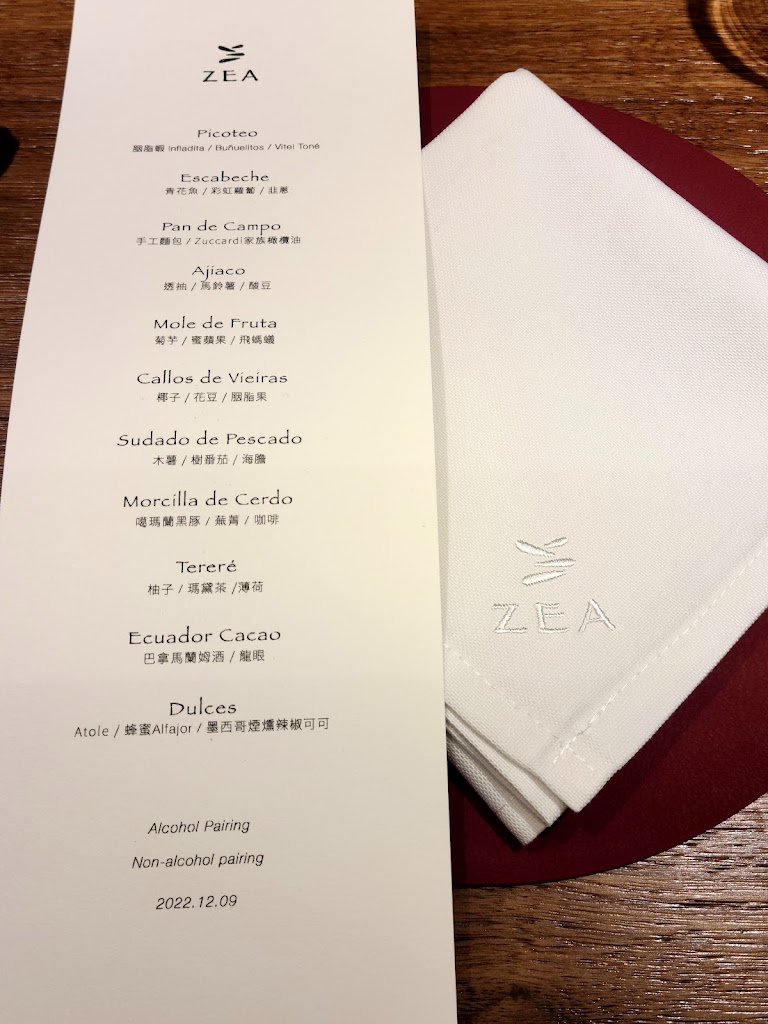 ZEA
Picoteo
胭脂蝦 Infladita / Buñuelitos / Vitel Toné
Escabeche
青花魚 / 彩虹蘿蔔 / 韭蔥
Pan de Campo
手工麵包 / Zuccardi家族橄欖油
Ajiaco
透抽 / 馬鈴薯 / 酸豆
Mole de Fruta
菊芋 / 蜜蘋果 / 飛螞蟻
Callos de Vieiras
椰子 / 花豆 / 胭脂果
Sudado de Pescado
木薯 / 樹番茄 / 海膽
Morcilla de Cerdo
噶瑪蘭黑豚 / 蕪菁 / 咖啡
Tereré
柚子 / 瑪黛茶 /薄荷
Ecuador Cacao
巴拿馬蘭姆酒 / 龍眼
Dulces
Atole / 蜂蜜Alfajor / 墨西哥煙燻辣椒可可
Alcohol Pairing
Non-alcohol pairing
2022.12.09
ZEA